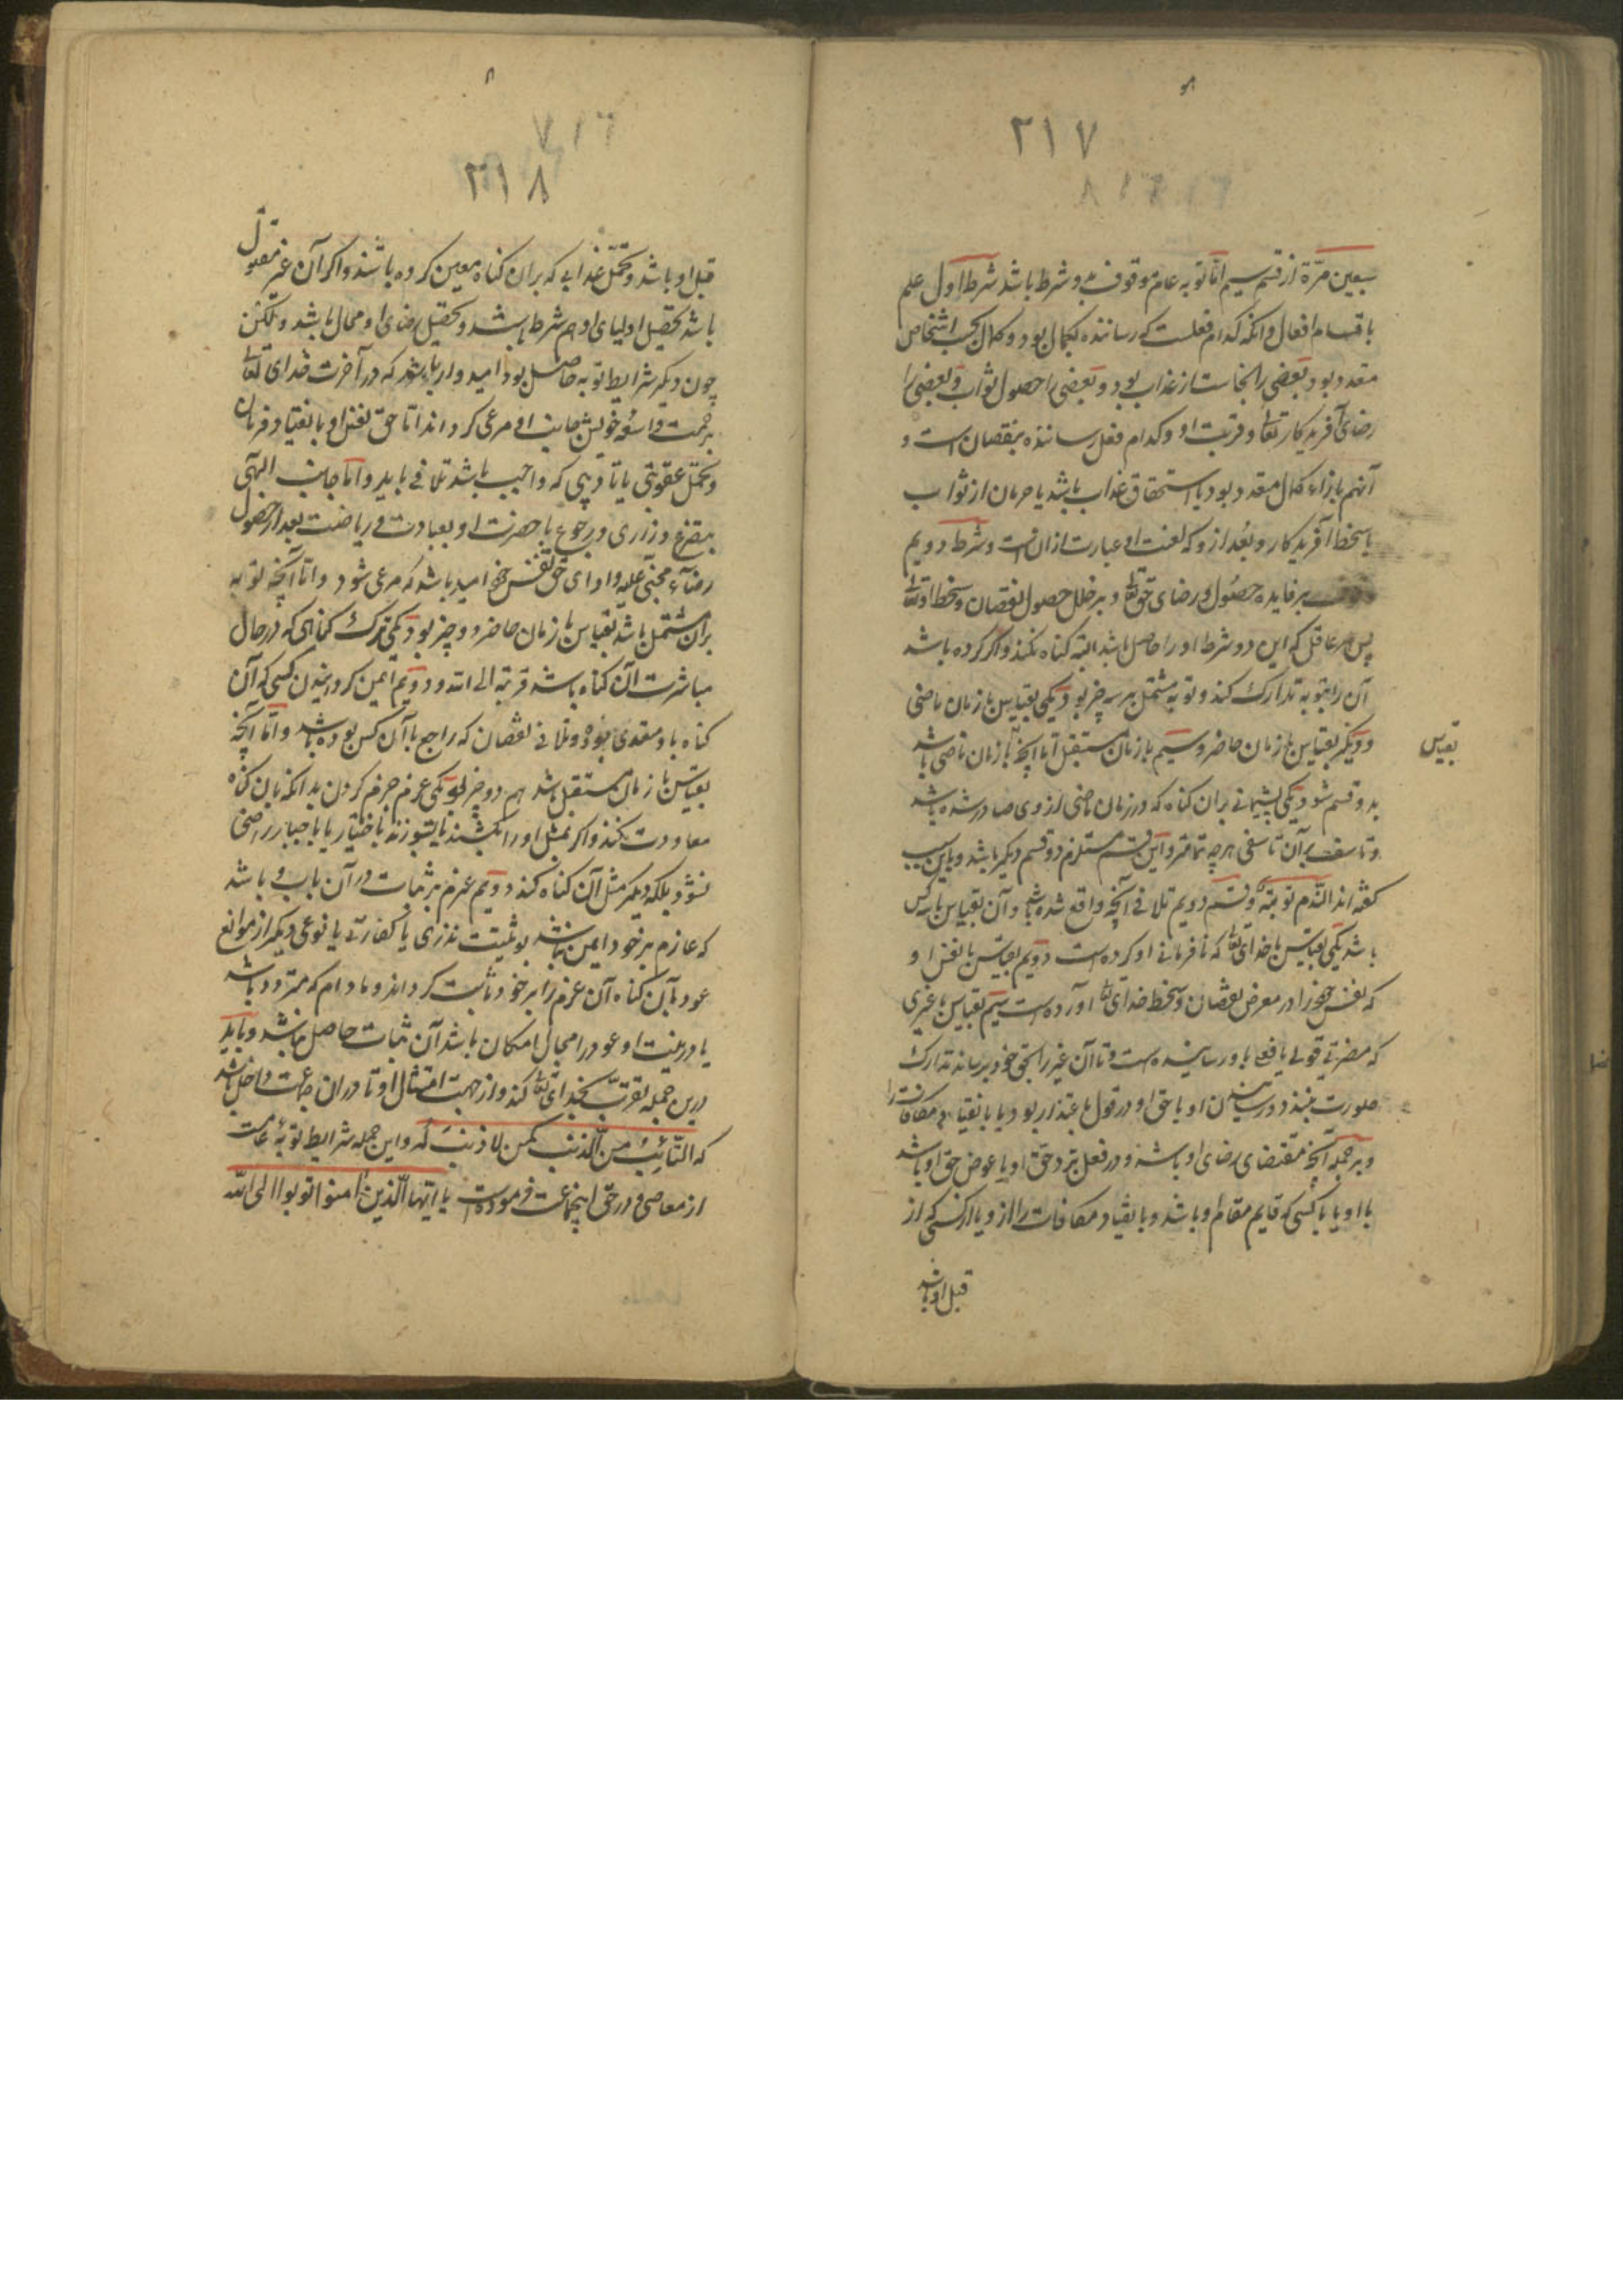 ۲۱۷
سبعین مرّة از قسم سیم امّا توبه عام موقوف بدو شرط باشد شرط اول علم
باقسام افعال و انکه کدام فعلست که رساننده بکمال بود و کمال بحسب اشخاص
متعدد بود بعضی را نجات از عذاب بود و بعضی را حصول ثواب و بعضی را
رضای آفریدکار تعالی و قربت او و کدام فعل رساننده بنقصان است و
آنهم بازاء کمال متعدد بود یا استحقاق عذاب باشد یا حرمان از ثواب
یا سخط آفریدکار و بُعد از و که لعنت او عبارت از ان است و شرط دویم
وقوف بر فایده حصول و رضای حق تعالی و بر خلل حصول نقصان و سخط او تعالی
پس هر عاقل که این دو شرط او را حاصل باشد البته کناه نکند و اکر کرده باشد
آن را بتوبه تدارک کند و توبه مشتمل بر سه چیز بود یکی بقیاس با زمان ماضی
و دیکر بقیاس با زمان حاضر و سیم با زمان مستقبل امّا انچه با زمان ماضی باشد
بقیاس
بدو قسم شود یکی پشیمانی بران کناه که در زمان ماضی از وی صادر شده باشد
و تاسف بر آن تاسفی هر چه تمامتر و این قسم مستلزم دو قسم دیکر باشد و باین سبب
کفته اند الندم توبة و قسم دویم تلافی آنچه واقع شده باشد و آن بقیاس با سه کس
باشد یکی بقیاس با خدای تعالی که نافرمانی او کرده است دویم بقیاس با نفس او
که نفس خود را در معرض نقصان و سخط خدای تعالی آورده است سیم بقیاس با غیری
که مضرتی قولی یا فعلی باو رسانیده است و تا آن غیر را بحق خود برساند تدارک
صورت نبندد و رسانیدن او با حق او در قول باعتذار بود یا بانقیاد مکافات را
و بر جمله آنچه مقتضای رضای او باشد و در فعل برد حق او یا عوض حق او باشد
با او یا با کسی که قایم مقام او باشد و بانقیاد مکافات را از و یا از کسی که از
قبل او باشد
۲۱۸
قبل او باشد و تحمّل عذابی که بران کناه معین کرده باشند و اکر آن غیر مقتول
باشد تحصیل اولیای او هم شرط باشد و تحصیل رضای او محال باشد و لیکن
چون دیکر شرایط توبه حاصل بود امیدوار باشد که در آخرت خدای تعالی
برحمت واسعه خویش جانب او مرعی کرداند امّا حق نفس او بانقیاد فرمان
و تحمّل عقوبتی یا تادیبی که واجب باشد تلافی باید و امّا جانب الهی
بتضرع و زاری و رجوع با حضرت او بعبادت و ریاضت بعد از حصول
رضاء مجنی علیه و ادای حق نفس خود امید باشد که مرعی شود و امّا آنچه توبه
بران مشتمل باشد بقیاس با زمان حاضر دو چیز بود یکی ترک کناهی که در حال
مباشرت آن کناه باشد قربة الی الله و دویم ایمن کردانیدن کسی که آن
کناه باو متعدی بوده و تلافی نقصان که راجع باآن کس بوده باشد و امّا آنچه
بقیاس با زمان مستقبل باشد هم دو چیز بود یکی عزم جزم کردن بدانکه بان کناه
معاودت نکند و اکر بمثل او را بکشند یا بسوزند باختیار یا باجبار راضی
نشود بلکه دیکر مثل آن کناه نکند دویم عزم بر ثبات در آن باب و باشد
که عازم بر خود ایمن نباشد بتثبیت نذری یا کفارتی یا نوعی دیکر از موانع
عود بآن کناه آن عزم را بر خود ثابت کرداند و مادام که متردد باشد
یا در نیت او عود را مجال امکان باشد آن ثبات حاصل نباشد و باید
درین جمله تقرّب بخدای تعالی کند و از جهت امتثال او تا در ان جماعت داخل باشد
که التّائب من الذّنب کمن لا ذنب له و این جمله شرایط توبهٔ عامست
از معاصی و در حق اینجماعت فرموده است یا ایّها الّذین امنوا توبوا الی الله